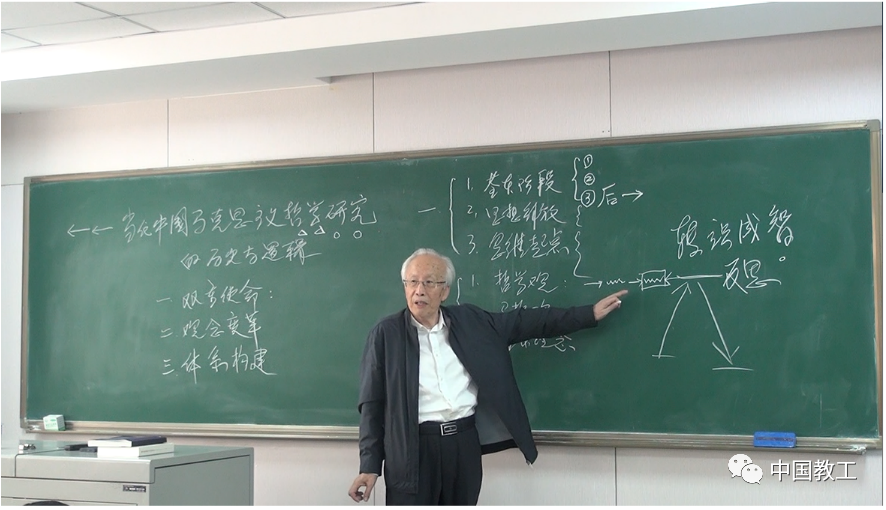 ←← 当代中国马克思主义哲学研究
的历史与逻辑
一 双重使命：
二 观念变革
三 体系构建
一
1. 基本阶段
① ② ③ 后→
2. 思想解放
3. 思维起点
1. 哲学观：
转识成智
反思
中国教工